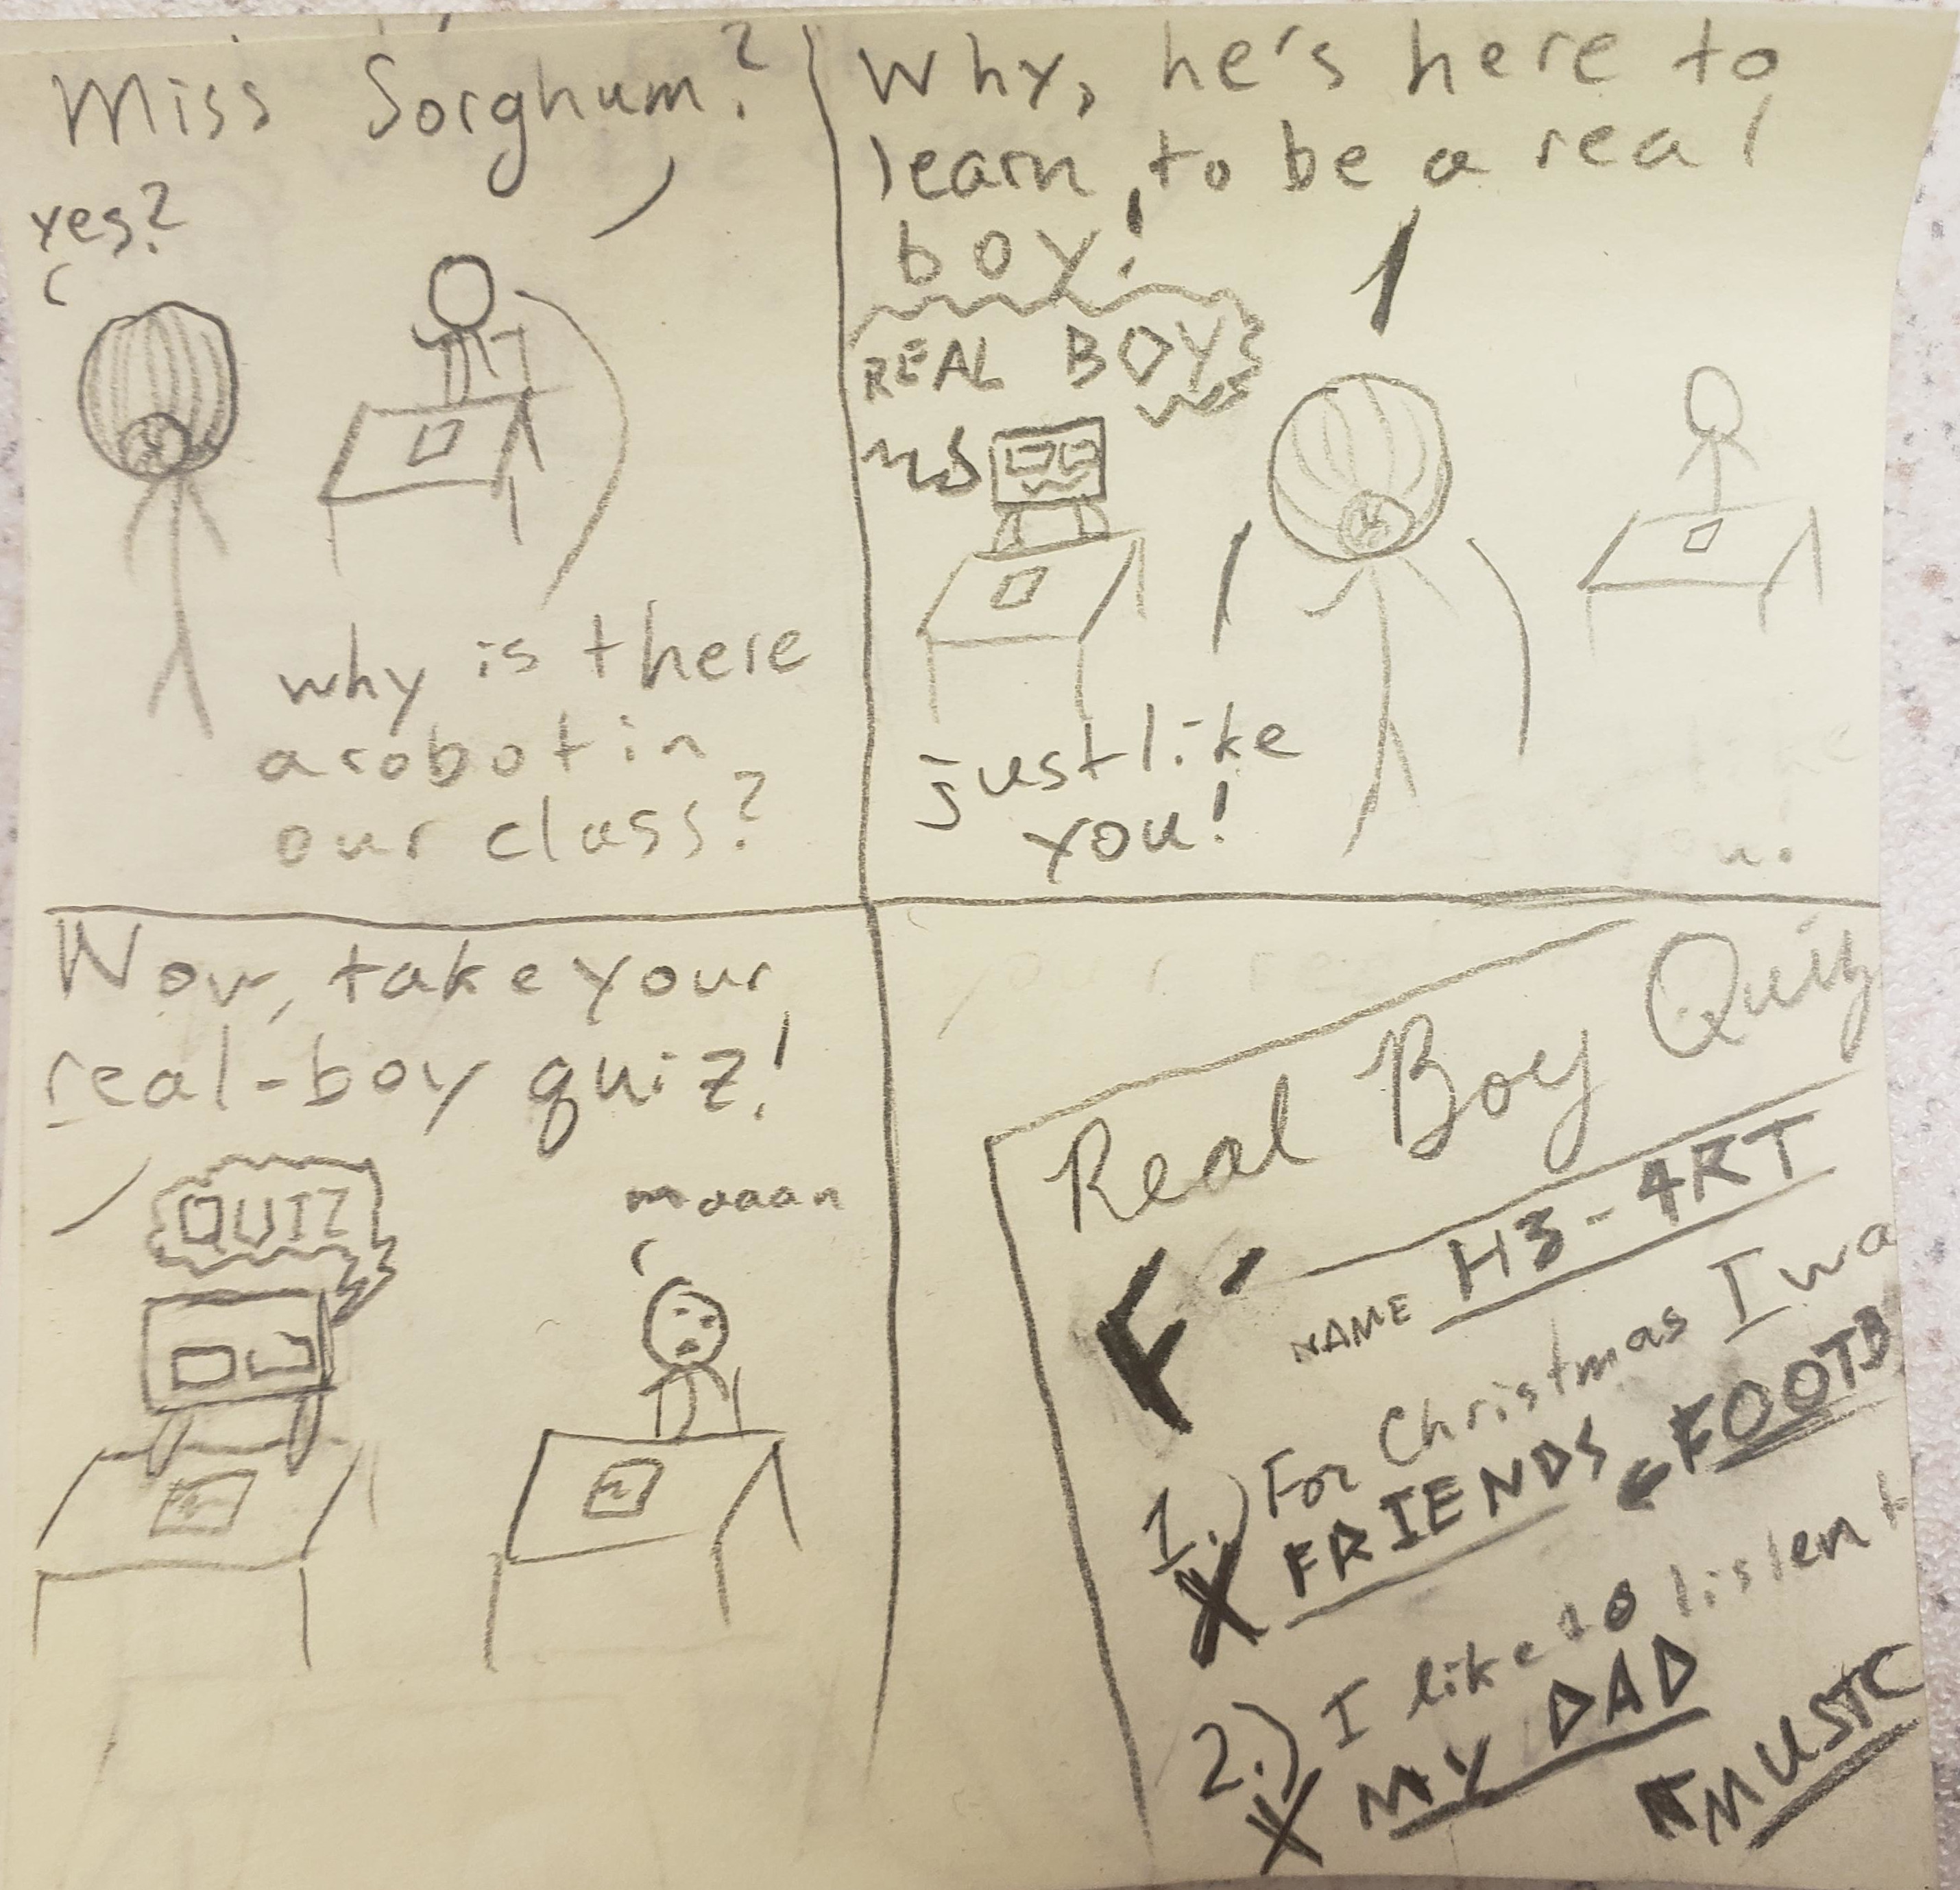 Miss Sorghum?
yes?
why is there
a robot in
our class?
Why, he's here to
learn to be a real
boy!
REAL BOY
just like
you!
Now, take your
real-boy quiz!
QUIZ
maaan
Real Boy Quiz
F-
NAME H3-4RT
1.) For Christmas I wa
FRIENDS FOOTB
X
2.) I like to listen t
X MY DAD
MUSIC